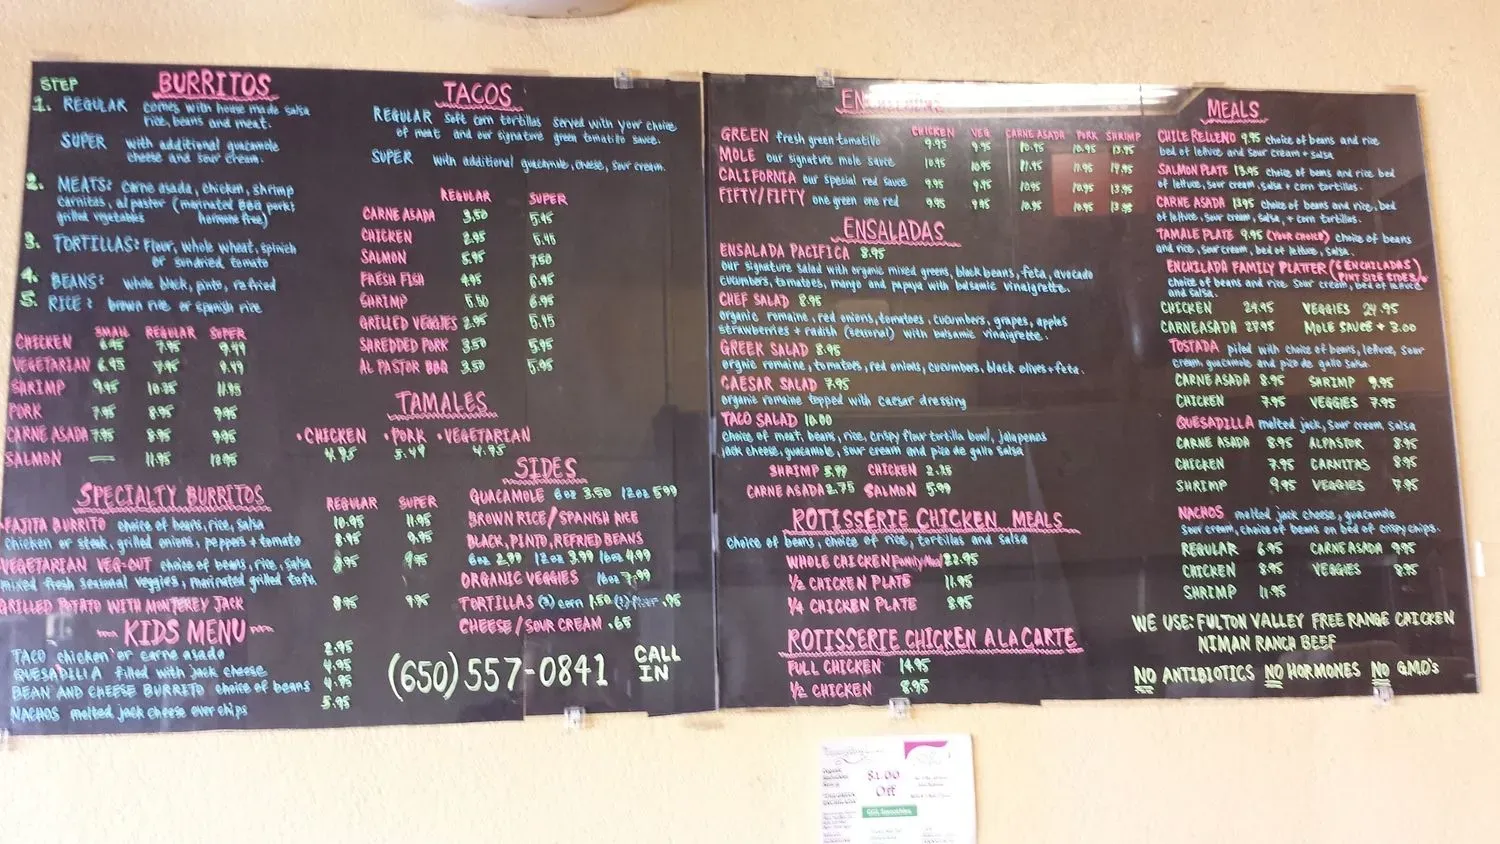 STEP
BURRITOS
1. REGULAR comes with home made salsa
rice, beans and meat.
SUPER with additional guacamole
cheese and sour cream.
2. MEATS: carne asada, chicken, shrimp
carnitas, al pastor (marinated BBQ pork,
grilled vegetables hormone free)
3. TORTILLAS: Flour, whole wheat, spinich
or sundried tomato
4. BEANS: whole black, pinto, refried
5. RICE: brown rice or spanish rice
SMALL REGULAR SUPER
CHICKEN 6.95 7.95 9.49
VEGETARIAN 6.95 7.95 9.49
SHRIMP 9.95 10.75 11.95
PORK 7.95 8.95 9.95
CARNE ASADA 7.95 8.95 9.95
SALMON — 11.95 12.95
SPECIALTY BURRITOS
REGULAR SUPER
FAJITA BURRITO choice of beans, rice, salsa 10.95 11.95
chicken or steak, grilled onions, peppers + tomato 8.95 9.95
VEGETARIAN VEG-OUT choice of beans, rice, salsa 8.95 9.95
mixed fresh seasonal veggies, marinated grilled tofu.
GRILLED POTATO WITH MONTEREY JACK 8.95 9.95
KIDS MENU
TACO chicken or carne asada 2.95
QUESADILLA filled with jack cheese 4.95
BEAN AND CHEESE BURRITO choice of beans 4.95
NACHOS melted jack cheese over chips 5.95
TACOS
REGULAR soft corn tortillas served with your choice
of meat and our signature green tomatillo sauce.
SUPER with additional guacamole, cheese, sour cream.
REGULAR SUPER
CARNE ASADA 3.50 5.95
CHICKEN 2.95 5.45
SALMON 5.95 7.50
FRESH FISH 4.95 6.95
SHRIMP 5.50 6.95
GRILLED VEGGIES 2.95 5.45
SHREDDED PORK 3.50 5.95
AL PASTOR BBQ 3.50 5.95
TAMALES
• CHICKEN • PORK • VEGETARIAN
4.95 5.49 4.95
SIDES
GUACAMOLE 6oz 3.50 12oz 5.99
BROWN RICE/SPANISH RICE
BLACK, PINTO, REFRIED BEANS
6oz 2.99 12oz 3.99 16oz 4.99
ORGANIC VEGGIES 16oz 7.99
TORTILLAS (3) corn 1.50 (1) flour .95
CHEESE/SOUR CREAM .65
(650) 557-0841 CALL
IN
CHICKEN VEG CARNE ASADA PORK SHRIMP
GREEN fresh green tomatillo 9.95 9.95 10.95 10.95 13.95
MOLE our signature mole sauce 10.95 10.95 11.95 11.95 14.95
CALIFORNIA our special red sauce 9.95 9.95 10.95 10.95 13.95
FIFTY/FIFTY one green one red 9.95 9.95 10.95 10.95 13.95
ENSALADAS
ENSALADA PACIFICA 8.95
our signature salad with organic mixed greens, black beans, feta, avocado
cucumbers, tomatoes, mango and papaya with balsamic vinaigrette.
CHEF SALAD 8.95
organic romaine, red onions, tomatoes, cucumbers, grapes, apples
strawberries + radish (seasonal) with balsamic vinaigrette.
GREEK SALAD 8.95
orgnic romaine, tomatoes, red onions, cucumbers, black olives + feta.
CAESAR SALAD 7.95
organic romaine topped with caesar dressing
TACO SALAD 10.00
choice of meat, beans, rice, crispy flour tortilla bowl, jalapenos
jack cheese, guacamole, sour cream and pico de gallo salsa
SHRIMP 5.99 CHICKEN 2.75
CARNE ASADA 2.75 SALMON 5.99
ROTISSERIE CHICKEN MEALS
Choice of beans, choice of rice, tortillas and salsa
WHOLE CHICKEN Family Meal 22.95
1/2 CHICKEN PLATE 11.95
1/4 CHICKEN PLATE 8.95
ROTISSERIE CHICKEN A LA CARTE
FULL CHICKEN 14.95
1/2 CHICKEN 8.95
MEALS
CHILE RELLENO 9.95 choice of beans and rice
bed of lettuce and sour cream + salsa
SALMON PLATE 13.95 choice of beans and rice bed
of lettuce, sour cream, salsa + corn tortillas.
CARNE ASADA 13.95 choice of beans and rice, bed
of lettuce, sour cream, salsa, + corn tortillas.
TAMALE PLATE 9.95 (YOUR CHOICE) choice of beans
and rice, sour cream, bed of lettuce, salsa.
ENCHILADA FAMILY PLATTER (6 ENCHILADAS)
(PINT SIZE SIDES)
choice of beans and rice sour cream, bed of lettuce
and salsa.
CHICKEN 24.95 VEGGIES 24.95
CARNE ASADA 27.95 MOLE SAUCE + 3.00
TOSTADA piled with choice of beans, lettuce, sour
cream, guacamole and pico de gallo salsa.
CARNE ASADA 8.95 SHRIMP 9.95
CHICKEN 7.95 VEGGIES 7.95
QUESADILLA melted jack, sour cream, salsa
CARNE ASADA 8.95 AL PASTOR 8.95
CHICKEN 7.95 CARNITAS 8.95
SHRIMP 9.95 VEGGIES 7.95
NACHOS melted jack cheese, guacamole
sour cream, choice of beans on bed of crispy chips.
REGULAR 6.95 CARNE ASADA 9.95
CHICKEN 8.95 VEGGIES 8.95
SHRIMP 11.95
WE USE: FULTON VALLEY FREE RANGE CHICKEN
NIMAN RANCH BEEF
NO ANTIBIOTICS NO HORMONES NO G.M.O's
$1.00
Off